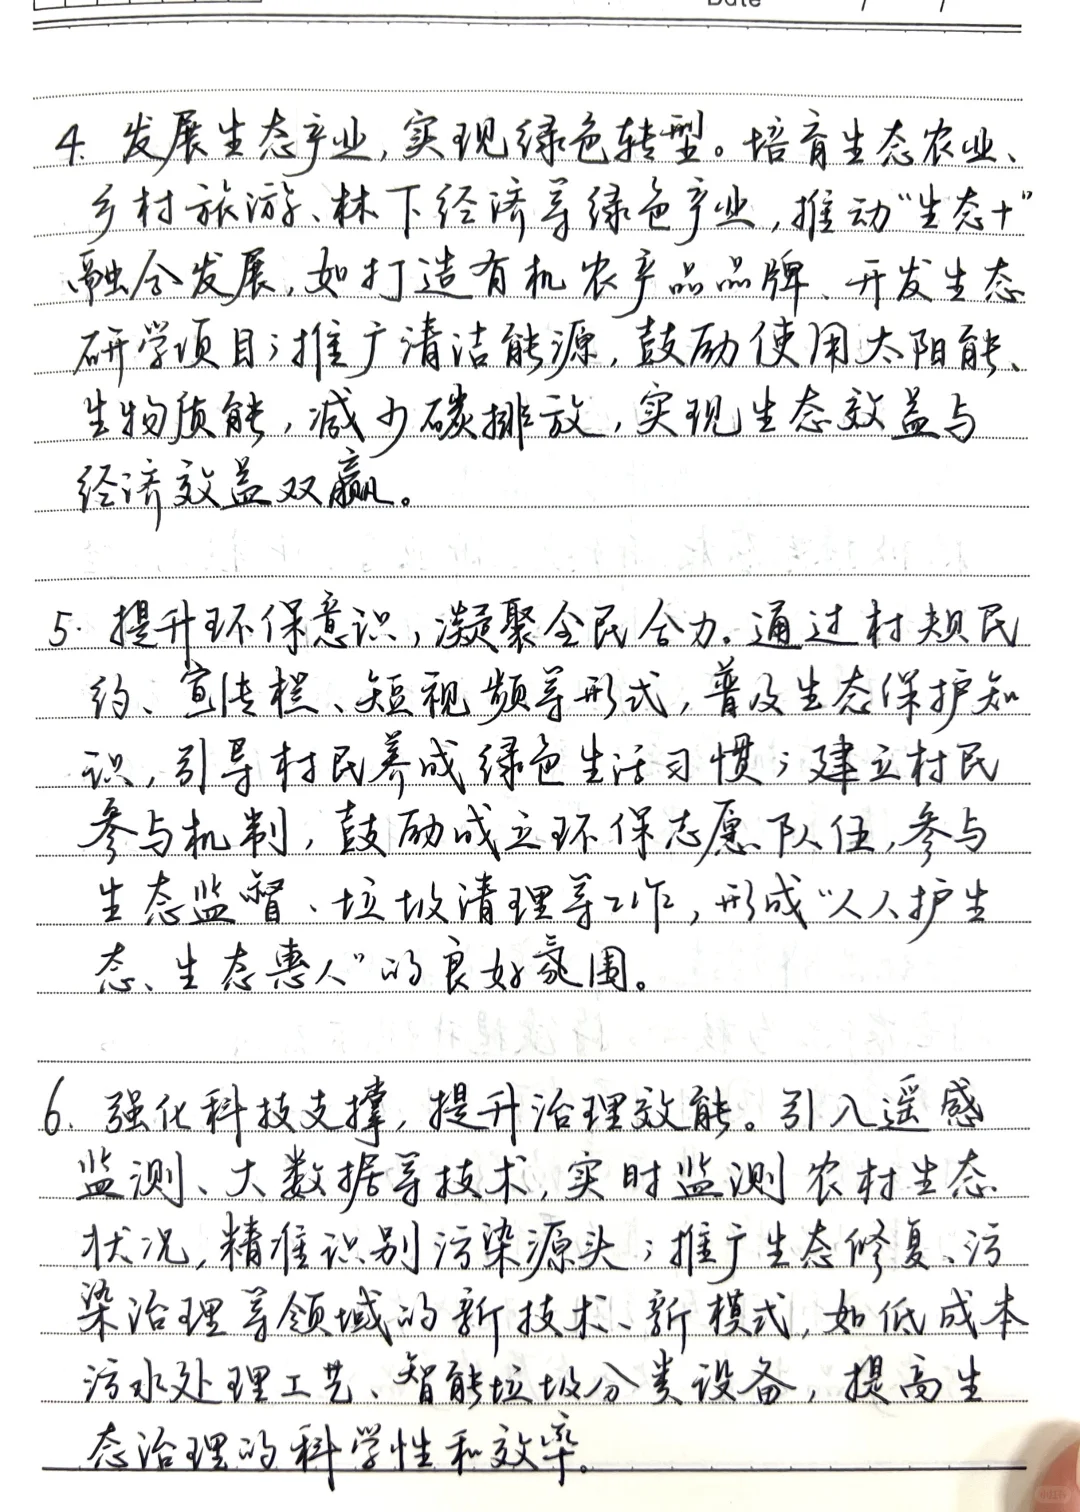 Date / /
4. 发展生态产业，实现绿色转型。培育生态农业、
乡村旅游、林下经济等绿色产业，推动“生态+”
融合发展，如打造有机农产品品牌、开发生态
研学项目；推广清洁能源，鼓励使用太阳能、
生物质能，减少碳排放，实现生态效益与
经济效益双赢。
5. 提升环保意识，凝聚全民合力。通过村规民
约、宣传栏、短视频等形式，普及生态保护知
识，引导村民养成绿色生活习惯；建立村民
参与机制，鼓励成立环保志愿队伍，参与
生态监督、垃圾清理等工作，形成“人人护生
态、生态惠人”的良好氛围。
6. 强化科技支撑，提升治理效能。引入遥感
监测、大数据等技术，实时监测农村生态
状况，精准识别污染源头；推广生态修复、污
染治理等领域的新技术、新模式，如低成本
污水处理工艺、智能垃圾分类设备，提高生
态治理的科学性和效率。